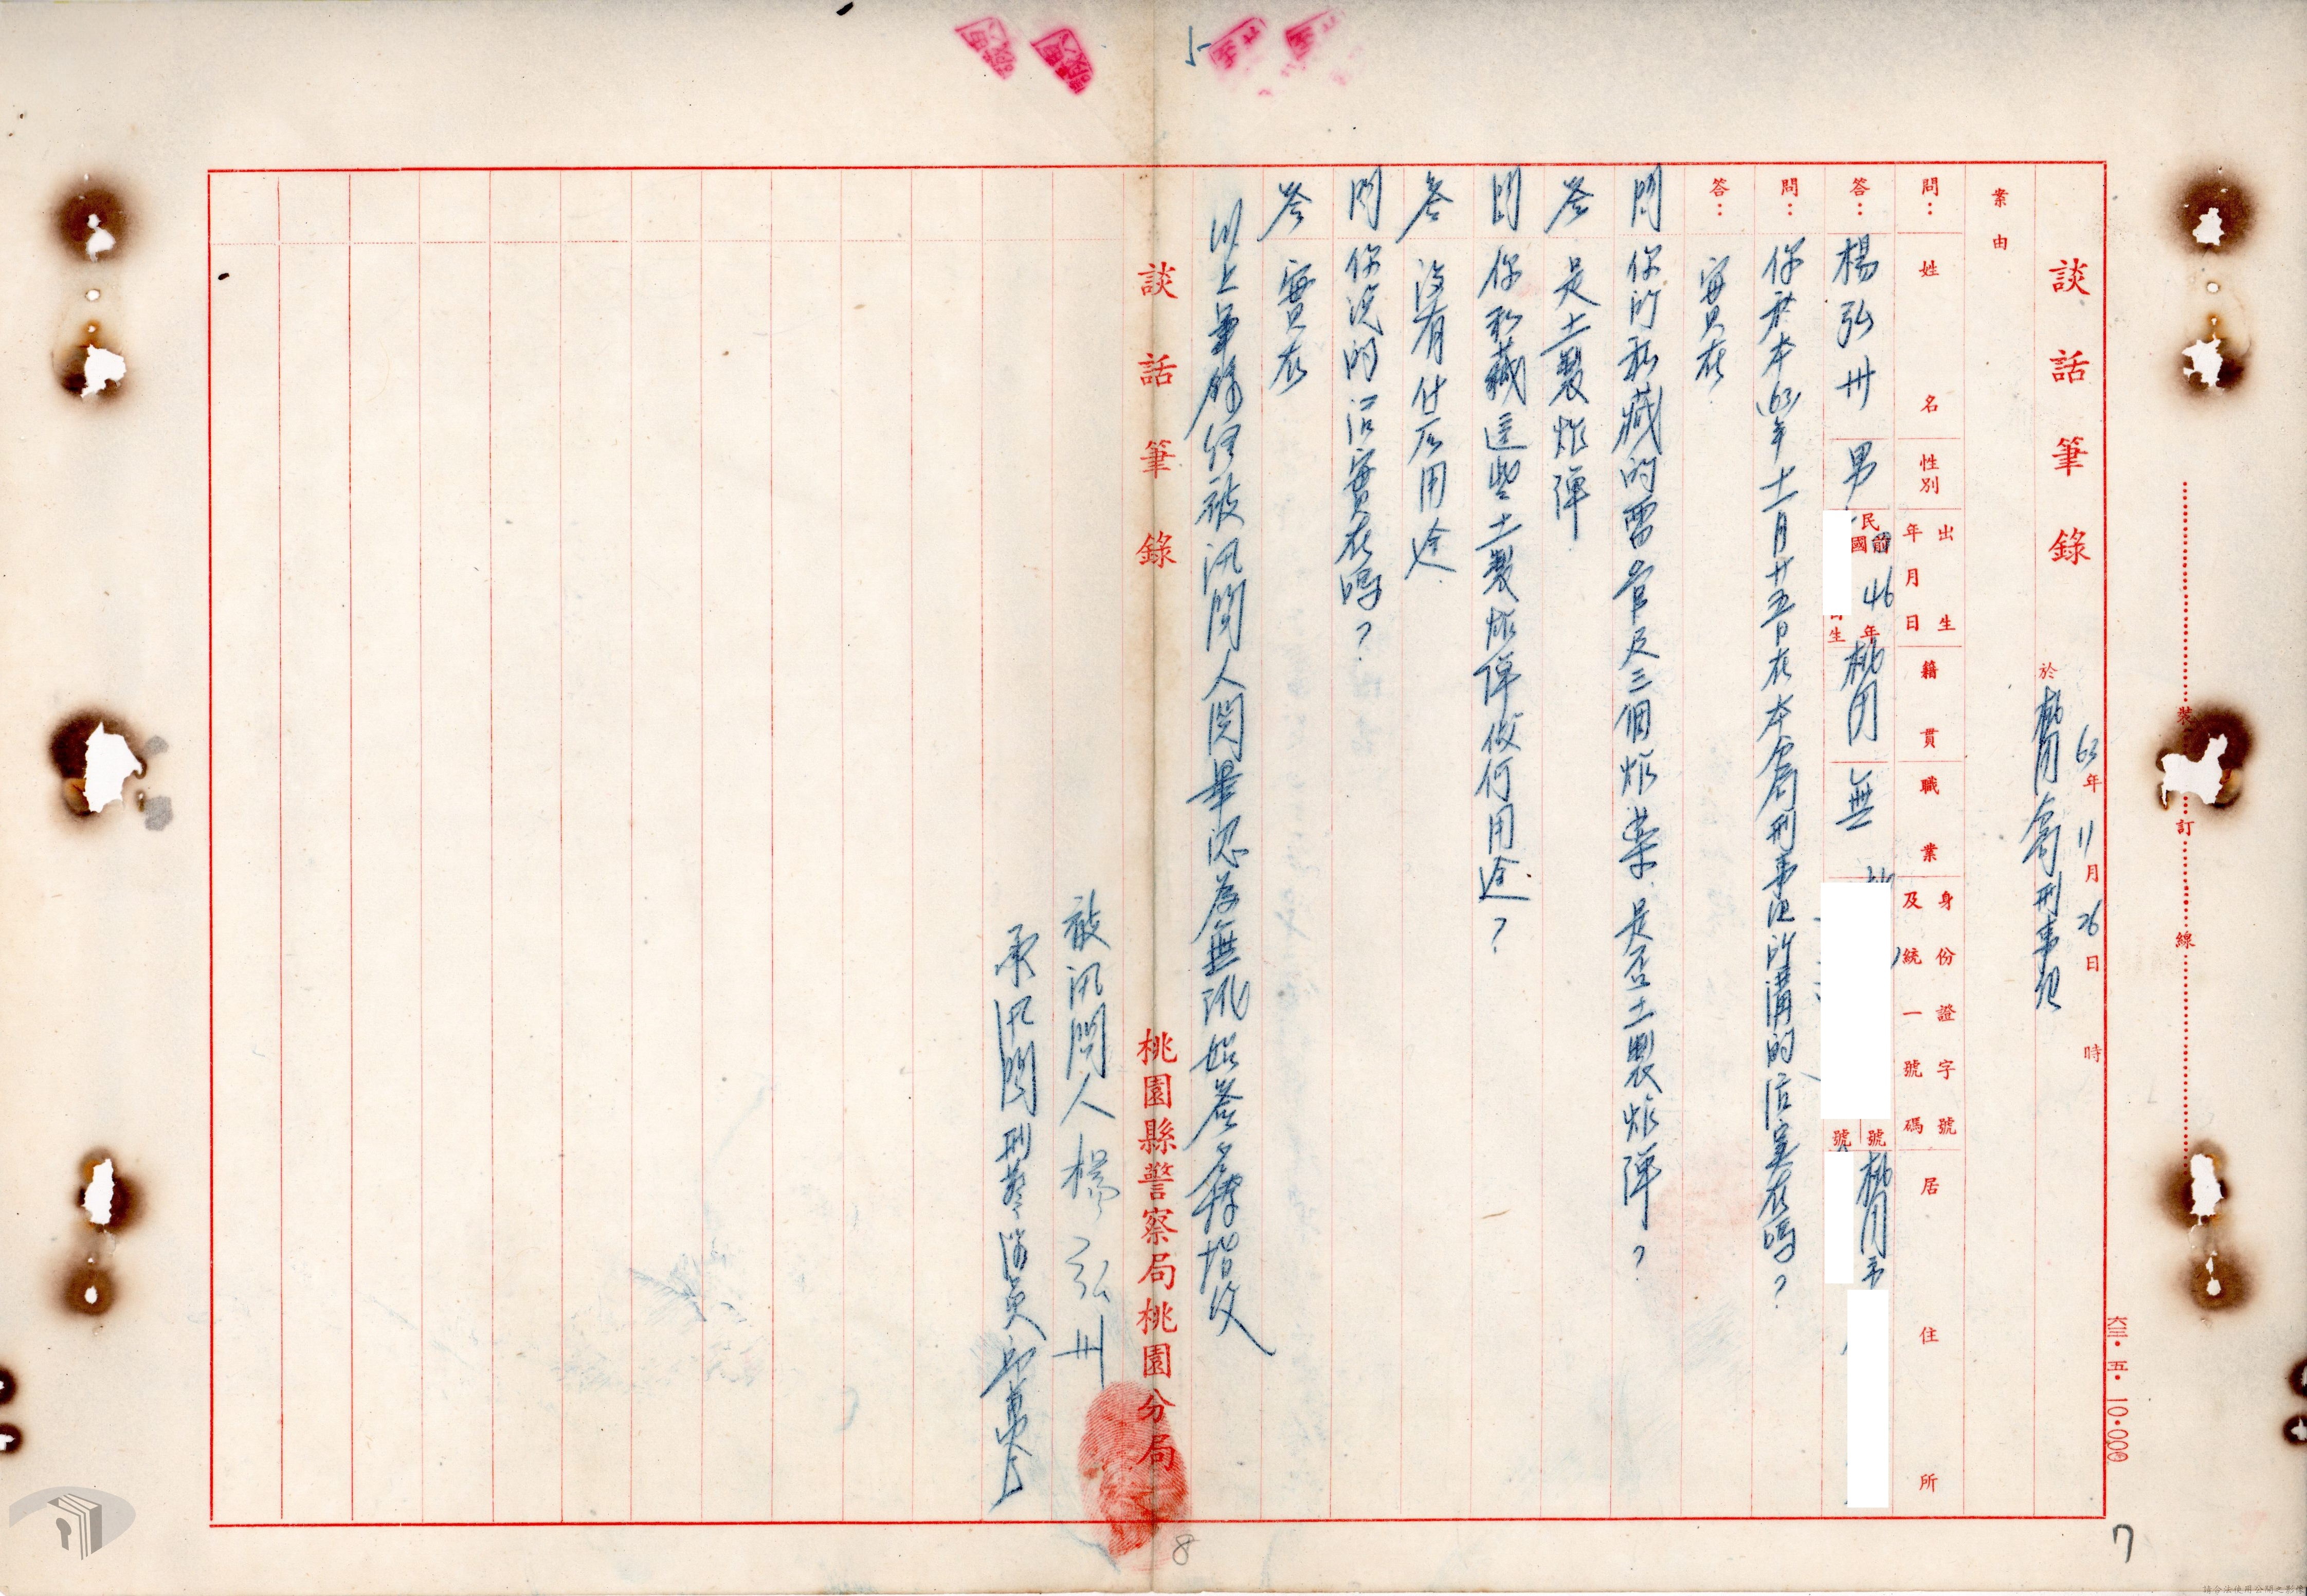 談話筆錄
63年11月26日 時
於桃園分局刑事組
案由
問：
姓名
性別
出生年月日
籍貫
職業
身份證字號及統一號碼
居住所
答：
楊弘卅
男
民國前
46年
生
桃園
無
號
號
桃園市
問：你於本(63)年十一月廿五日在本分局刑事組所講的話實在嗎？
答：實在
問 你所私藏的雷管及三個炸藥是否土製炸彈？
答 是土製炸彈
問 你私藏這些土製炸彈做何用途？
答 沒有什么用途
問 你說的話實在嗎？
答 實在
以上筆錄經被訊問人閱畢認為無訛始簽名捺指紋
談話筆錄
桃園縣警察局桃園分局
被訊問人 楊弘卅
承訊問刑警隊員
裝 訂 線
六三・五・一〇・〇〇〇
7
8